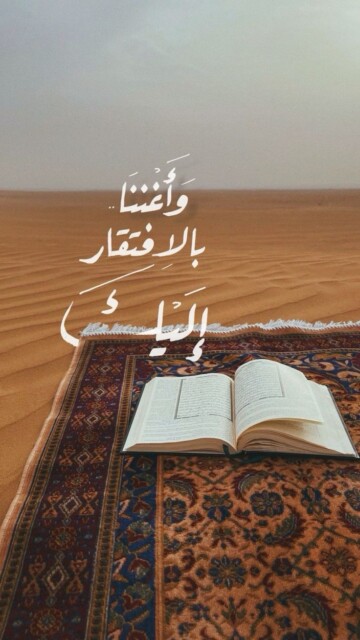 وَأَغْنِنَا..
بالافتقار
إِلَيْكَ